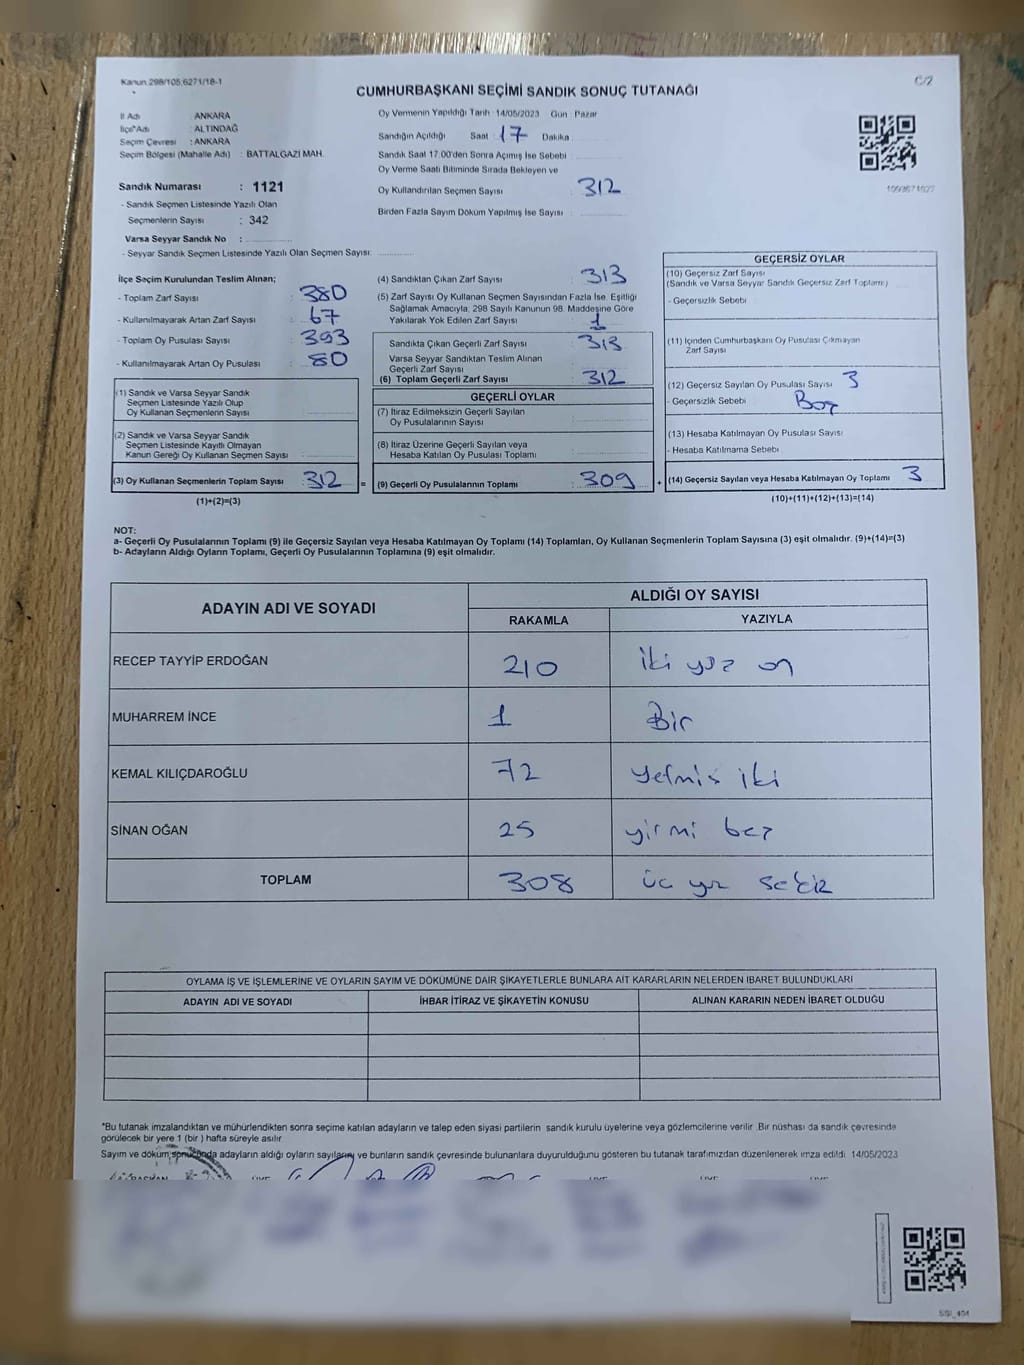 Kanun 298/105,6271/18-1
C/2
CUMHURBAŞKANI SEÇİMİ SANDIK SONUÇ TUTANAĞI
İl Adı : ANKARA
İlçe Adı : ALTINDAĞ
Seçim Çevresi : ANKARA
Seçim Bölgesi (Mahalle Adı) : BATTALGAZİ MAH.
Sandık Numarası : 1121
- Sandık Seçmen Listesinde Yazılı Olan
Seçmenlerin Sayısı : 342
Varsa Seyyar Sandık No :
- Seyyar Sandık Seçmen Listesinde Yazılı Olan Seçmen Sayısı:
Oy Vermenin Yapıldığı Tarih : 14/05/2023 Gün : Pazar
Sandığın Açıldığı Saat : 17 Dakika
Sandık Saat 17.00'den Sonra Açımış İse Sebebi
Oy Verme Saati Bitiminde Sırada Bekleyen ve
Oy Kullandırılan Seçmen Sayısı : 312
Birden Fazla Sayım Döküm Yapılmış İse Sayısı :
1093671027
İlçe Seçim Kurulundan Teslim Alınan;
- Toplam Zarf Sayısı : 380
- Kullanılmayarak Artan Zarf Sayısı : 67
- Toplam Oy Pusulası Sayısı : 393
- Kullanılmayarak Artan Oy Pusulası : 80
(1) Sandık ve Varsa Seyyar Sandık
Seçmen Listesinde Yazılı Olup
Oy Kullanan Seçmenlerin Sayısı
(2) Sandık ve Varsa Seyyar Sandık
Seçmen Listesinde Kayıtlı Olmayan
Kanun Gereği Oy Kullanan Seçmen Sayısı :
(3) Oy Kullanan Seçmenlerin Toplam Sayısı : 312 =
(1)+(2)=(3)
(4) Sandıktan Çıkan Zarf Sayısı : 313
(5) Zarf Sayısı Oy Kullanan Seçmen Sayısından Fazla İse, Eşitliği
Sağlamak Amacıyla, 298 Sayılı Kanunun 98. Maddesine Göre
Yakılarak Yok Edilen Zarf Sayısı : 1
Sandıkta Çıkan Geçerli Zarf Sayısı : 313
Varsa Seyyar Sandıktan Teslim Alınan
Geçerli Zarf Sayısı
(6) Toplam Geçerli Zarf Sayısı : 312
GEÇERLİ OYLAR
(7) İtiraz Edilmeksizin Geçerli Sayılan
Oy Pusulalarının Sayısı
(8) İtiraz Üzerine Geçerli Sayılan veya
Hesaba Katılan Oy Pusulası Toplamı :
(9) Geçerli Oy Pusulalarının Toplamı : 309 +
GEÇERSİZ OYLAR
(10) Geçersiz Zarf Sayısı
(Sandık ve Varsa Seyyar Sandık Geçersiz Zarf Toplamı)
- Geçersizlik Sebebi
(11) İçinden Cumhurbaşkanı Oy Pusulası Çıkmayan
Zarf Sayısı
(12) Geçersiz Sayılan Oy Pusulası Sayısı : 3
- Geçersizlik Sebebi : Boş
(13) Hesaba Katılmayan Oy Pusulası Sayısı
- Hesaba Katılmama Sebebi
(14) Geçersiz Sayılan veya Hesaba Katılmayan Oy Toplamı : 3
(10)+(11)+(12)+(13)=(14)
NOT:
a- Geçerli Oy Pusulalarının Toplamı (9) ile Geçersiz Sayılan veya Hesaba Katılmayan Oy Toplamı (14) Toplamları, Oy Kullanan Seçmenlerin Toplam Sayısına (3) eşit olmalıdır. (9)+(14)=(3)
b- Adayların Aldığı Oyların Toplamı, Geçerli Oy Pusulalarının Toplamına (9) eşit olmalıdır.
ADAYIN ADI VE SOYADI ALDIĞI OY SAYISI
RAKAMLA YAZIYLA
RECEP TAYYİP ERDOĞAN 210 iki yüz on
MUHARREM İNCE 1 Bir
KEMAL KILIÇDAROĞLU 72 yetmis iki
SİNAN OĞAN 25 yirmi beş
TOPLAM 308 üç yüz sekiz
OYLAMA İŞ VE İŞLEMLERİNE VE OYLARIN SAYIM VE DÖKÜMÜNE DAİR ŞİKAYETLERLE BUNLARA AİT KARARLARIN NELERDEN İBARET BULUNDUKLARI
ADAYIN ADI VE SOYADI İHBAR İTİRAZ VE ŞİKAYETİN KONUSU ALINAN KARARIN NEDEN İBARET OLDUĞU
*Bu tutanak imzalandıktan ve mühürlendikten sonra seçime katılan adayların ve talep eden siyasi partilerin sandık kurulu üyelerine veya gözlemcilerine verilir. Bir nüshası da sandık çevresinde
görülecek bir yere 1 (bir) hafta süreyle asılır.
Sayım ve döküm sonucunda adayların aldığı oyların sayılarını ve bunların sandık çevresinde bulunanlara duyurulduğunu gösteren bu tutanak tarafımızdan düzenlenerek imza edildi. 14/05/2023